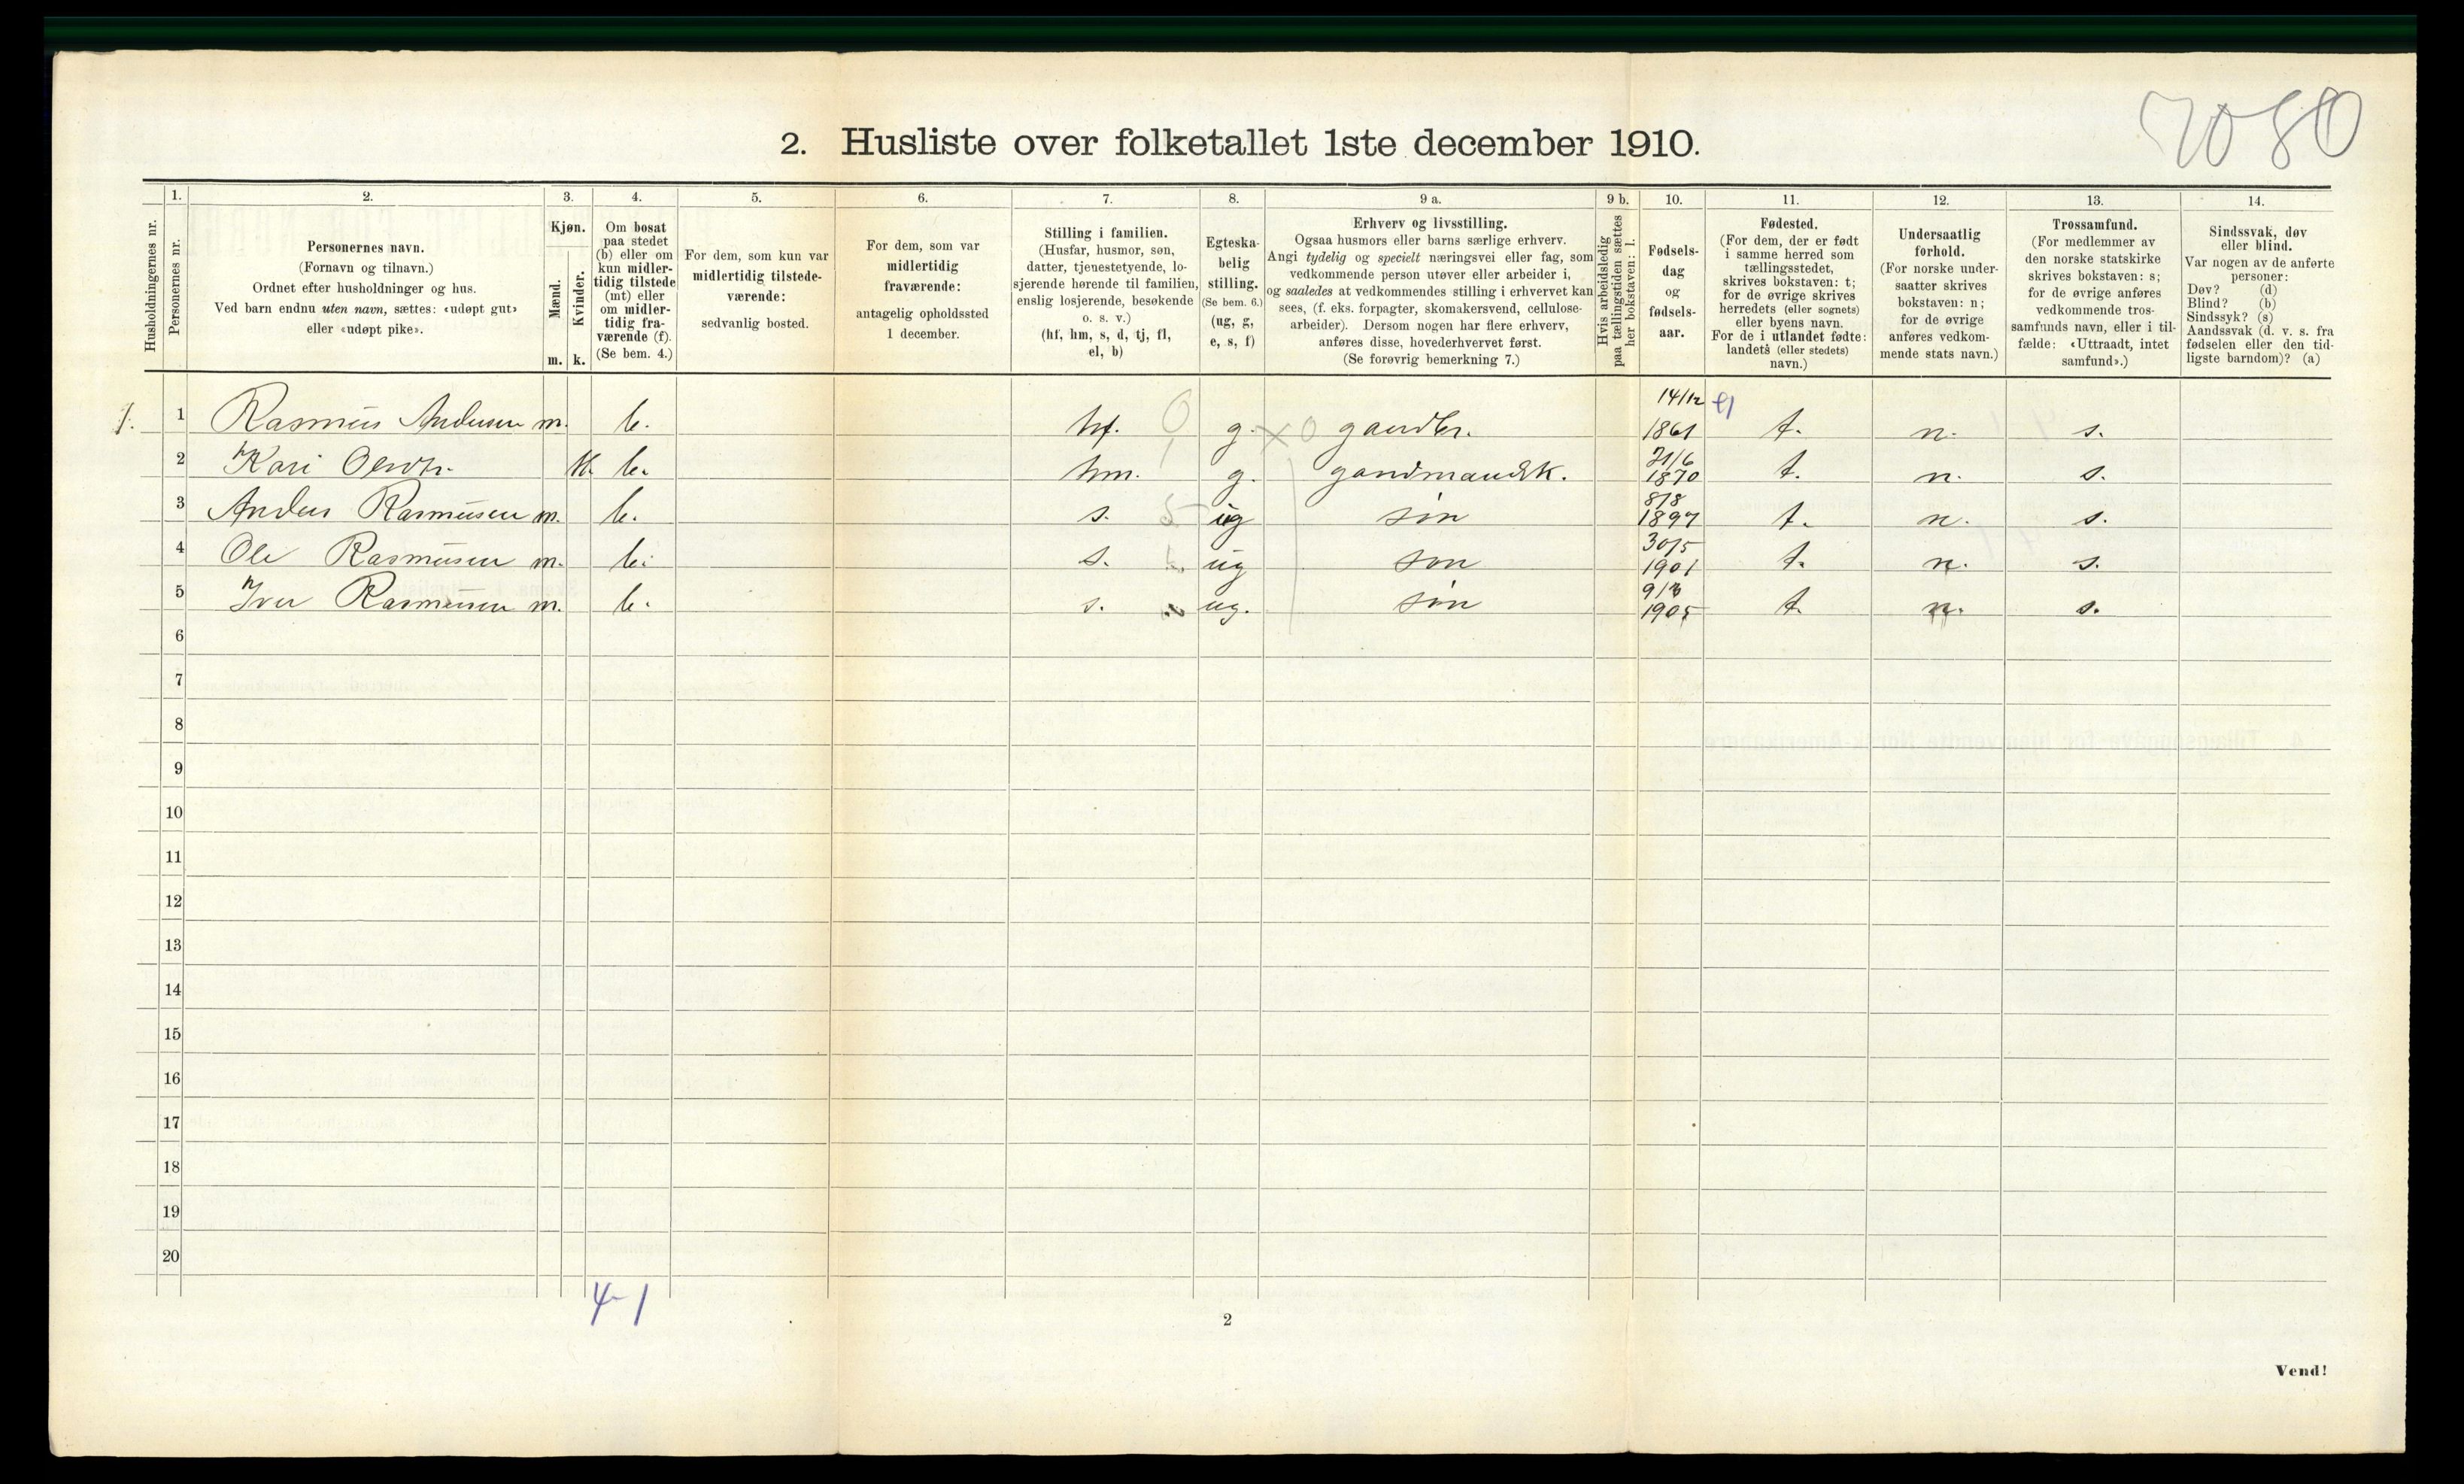 7080
2. Husliste over folketallet 1ste december 1910.
Husholdningernes nr.
1. Personernes nr.
2. Personernes navn.
(Fornavn og tilnavn.)
Ordnet efter husholdninger og hus.
Ved barn endnu uten navn, sættes: «udøpt gut»
eller «udøpt pike».
3. Kjøn.
Mænd. Kvinder.
m. k.
4. Om bosat
paa stedet
(b) eller om
kun midler-
tidig tilstede
(mt) eller
om midler-
tidig fra-
værende (f).
(Se bem. 4.)
5. For dem, som kun var
midlertidig tilstede-
værende:
sedvanlig bosted.
6. For dem, som var
midlertidig
fraværende:
antagelig opholdssted
1 december.
7. Stilling i familien.
(Husfar, husmor, søn,
datter, tjenestetyende, lo-
sjerende hørende til familien,
enslig losjerende, besøkende
o. s. v.)
(hf, hm, s, d, tj, fl,
el, b)
8. Egteska-
belig
stilling.
(Se bem. 6.)
(ug, g,
e, s, f)
9 a. Erhverv og livsstilling.
Ogsaa husmors eller barns særlige erhverv.
Angi tydelig og specielt næringsvei eller fag, som
vedkommende person utøver eller arbeider i,
og saaledes at vedkommendes stilling i erhvervet kan
sees, (f. eks. forpagter, skomakersvend, cellulose-
arbeider). Dersom nogen har flere erhverv,
anføres disse, hovederhvervet først.
(Se forøvrig bemerkning 7.)
9 b. Hvis arbeidsledig
paa tællingstiden sættes
her bokstaven: l.
10. Fødsels-
dag
og
fødsels-
aar.
11. Fødested.
(For dem, der er født
i samme herred som
tællingsstedet,
skrives bokstaven: t;
for de øvrige skrives
herredets (eller sognets)
eller byens navn.
For de i utlandet fødte:
landets (eller stedets)
navn.)
12. Undersaatlig
forhold.
(For norske under-
saatter skrives
bokstaven: n;
for de øvrige
anføres vedkom-
mende stats navn.)
13. Trossamfund.
(For medlemmer av
den norske statskirke
skrives bokstaven: s;
for de øvrige anføres
vedkommende tros-
samfunds navn, eller i til-
fælde: «Uttraadt, intet
samfund».)
14. Sindssvak, døv
eller blind.
Var nogen av de anførte
personer:
Døv? (d)
Blind? (b)
Sindssyk? (s)
Aandssvak (d. v. s. fra
fødselen eller den tid-
ligste barndom)? (a)
1. 1 Rasmus Andersen m. b. hf. g. gaardbr. 14/12 1861 t. n. s.
2 Kari Olsdtr. k. b. hm. g. gardmandsk. 21/6 1870 t. n. s.
3 Anders Rasmusen m. b. s. ug søn 8/8 1897 t. n. s.
4 Ole Rasmusen m. b. s. ug søn 30/5 1901 t. n. s.
5 Iver Rasmusen m. b. s. ug. søn 1905 t. n. s.
6
7
8
9
10
11
12
13
14
15
16
17
18
19
20
4-1
2
Vend!